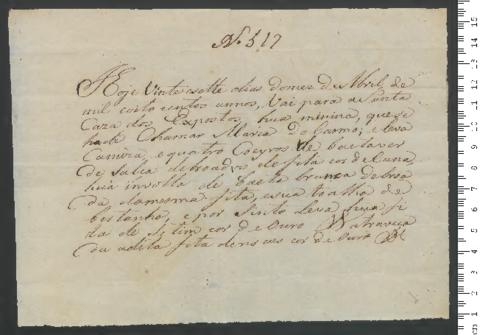 N. 517
Hoje Vinte esette dias domez d Abril de
mil eoito centos annos, Vai para a Santa
Caza dos Expostos hua minina, que se
hade Chamar Maria do Carmo; e leva
Camiza, equatro Coeyros de baeta ver
de Salca debroados de fita cor de Cana,
hua involta de baeta branca debroa
da, damesma fita, e sua toalha de
bertanha, e por Sinto leva hua fi
da de Setim cor de Ouro
fita de cor de Ouro
cm 1 2 3 4 5 6 7 8 9 10 11 12 13 14 15